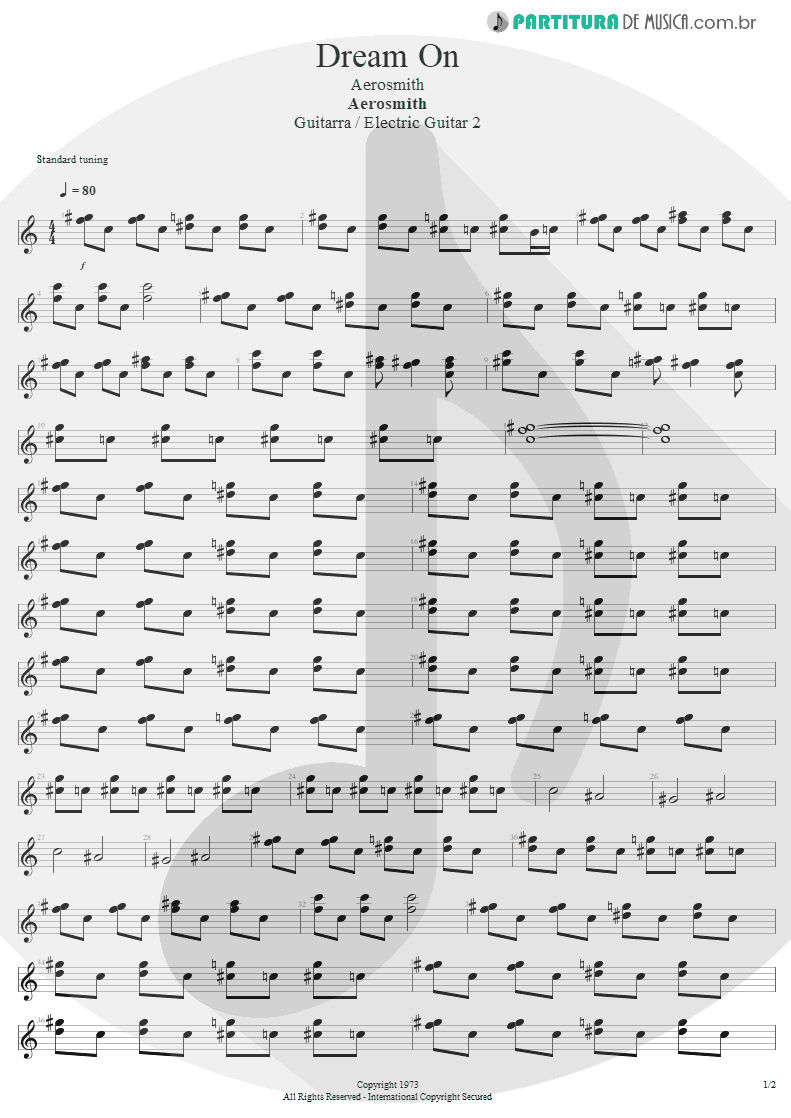 PARTITURA DE MUSICA.com.br
Dream On
Aerosmith
Aerosmith
Guitarra / Electric Guitar 2
Standard tuning
= 80
f
Copyright 1973
All Rights Reserved - International Copyright Secured
1/2